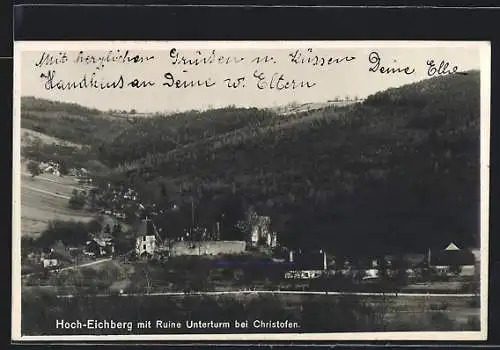 Mit herzlichen Grüßen u. Küssen Deine Elle
Handkuss an Deine w. Eltern
Hoch-Eichberg mit Ruine Unterturm bei Christofen.